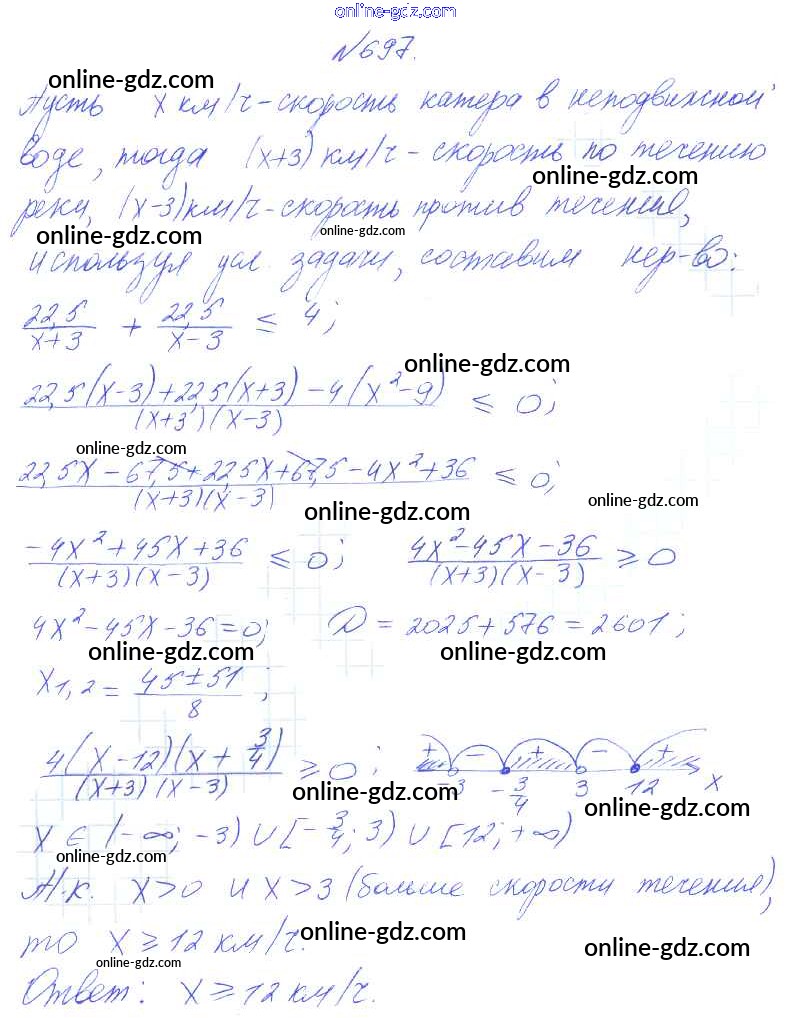 online-gdz.com
№697.
online-gdz.com
Пусть x км/ч - скорость катера в неподвижной
воде, тогда (x+3) км/ч - скорость по течению
online-gdz.com
реки, (x-3) км/ч - скорость против течения,
online-gdz.com online-gdz.com
используя усл. задачи, составим нер-во:
22,5/(x+3) + 22,5/(x-3) ≤ 4;
online-gdz.com
(22,5(x-3)+22,5(x+3)-4(x²-9))/((x+3)(x-3)) ≤ 0;
online-gdz.com
(22,5x-67,5+22,5x+67,5-4x²+36)/((x+3)(x-3)) ≤ 0;
online-gdz.com online-gdz.com
(-4x²+45x+36)/((x+3)(x-3)) ≤ 0; (4x²-45x-36)/((x+3)(x-3)) ≥ 0
4x²-45x-36=0; D = 2025+576=2601;
online-gdz.com online-gdz.com
x1,2 = (45±51)/8;
(4(x-12)(x+3/4))/((x+3)(x-3)) ≥ 0; + - + - -3 -3/4 3 12 x
online-gdz.com online-gdz.com
x ∈ (-∞; -3) ∪ [-3/4; 3) ∪ [12; +∞)
online-gdz.com
Т.к. x>0 и x>3 (больше скорости течения),
то x ≥ 12 км/ч.
online-gdz.com online-gdz.com
online-gdz.com
Ответ: x ≥ 12 км/ч.